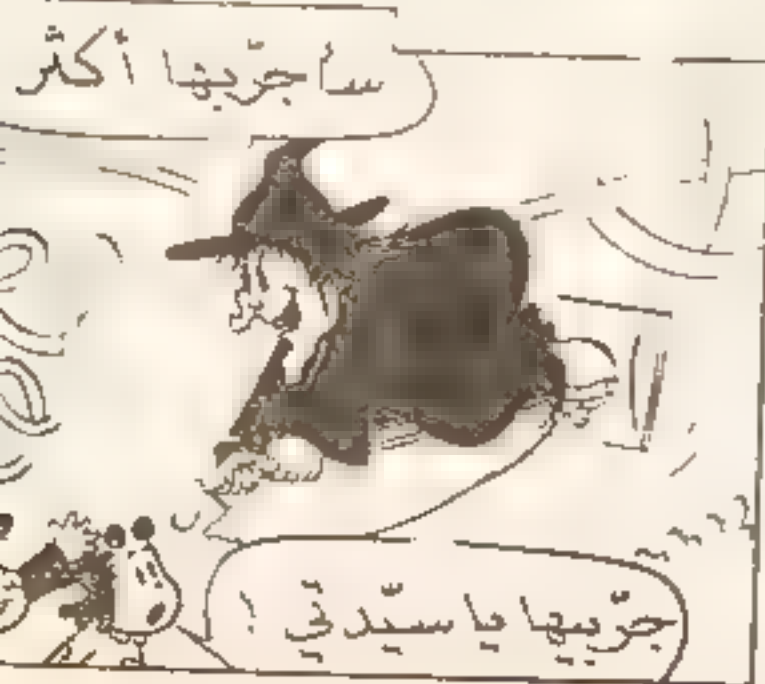 سأجرّبها أكثر
جرّبيها يا سيّدتي !